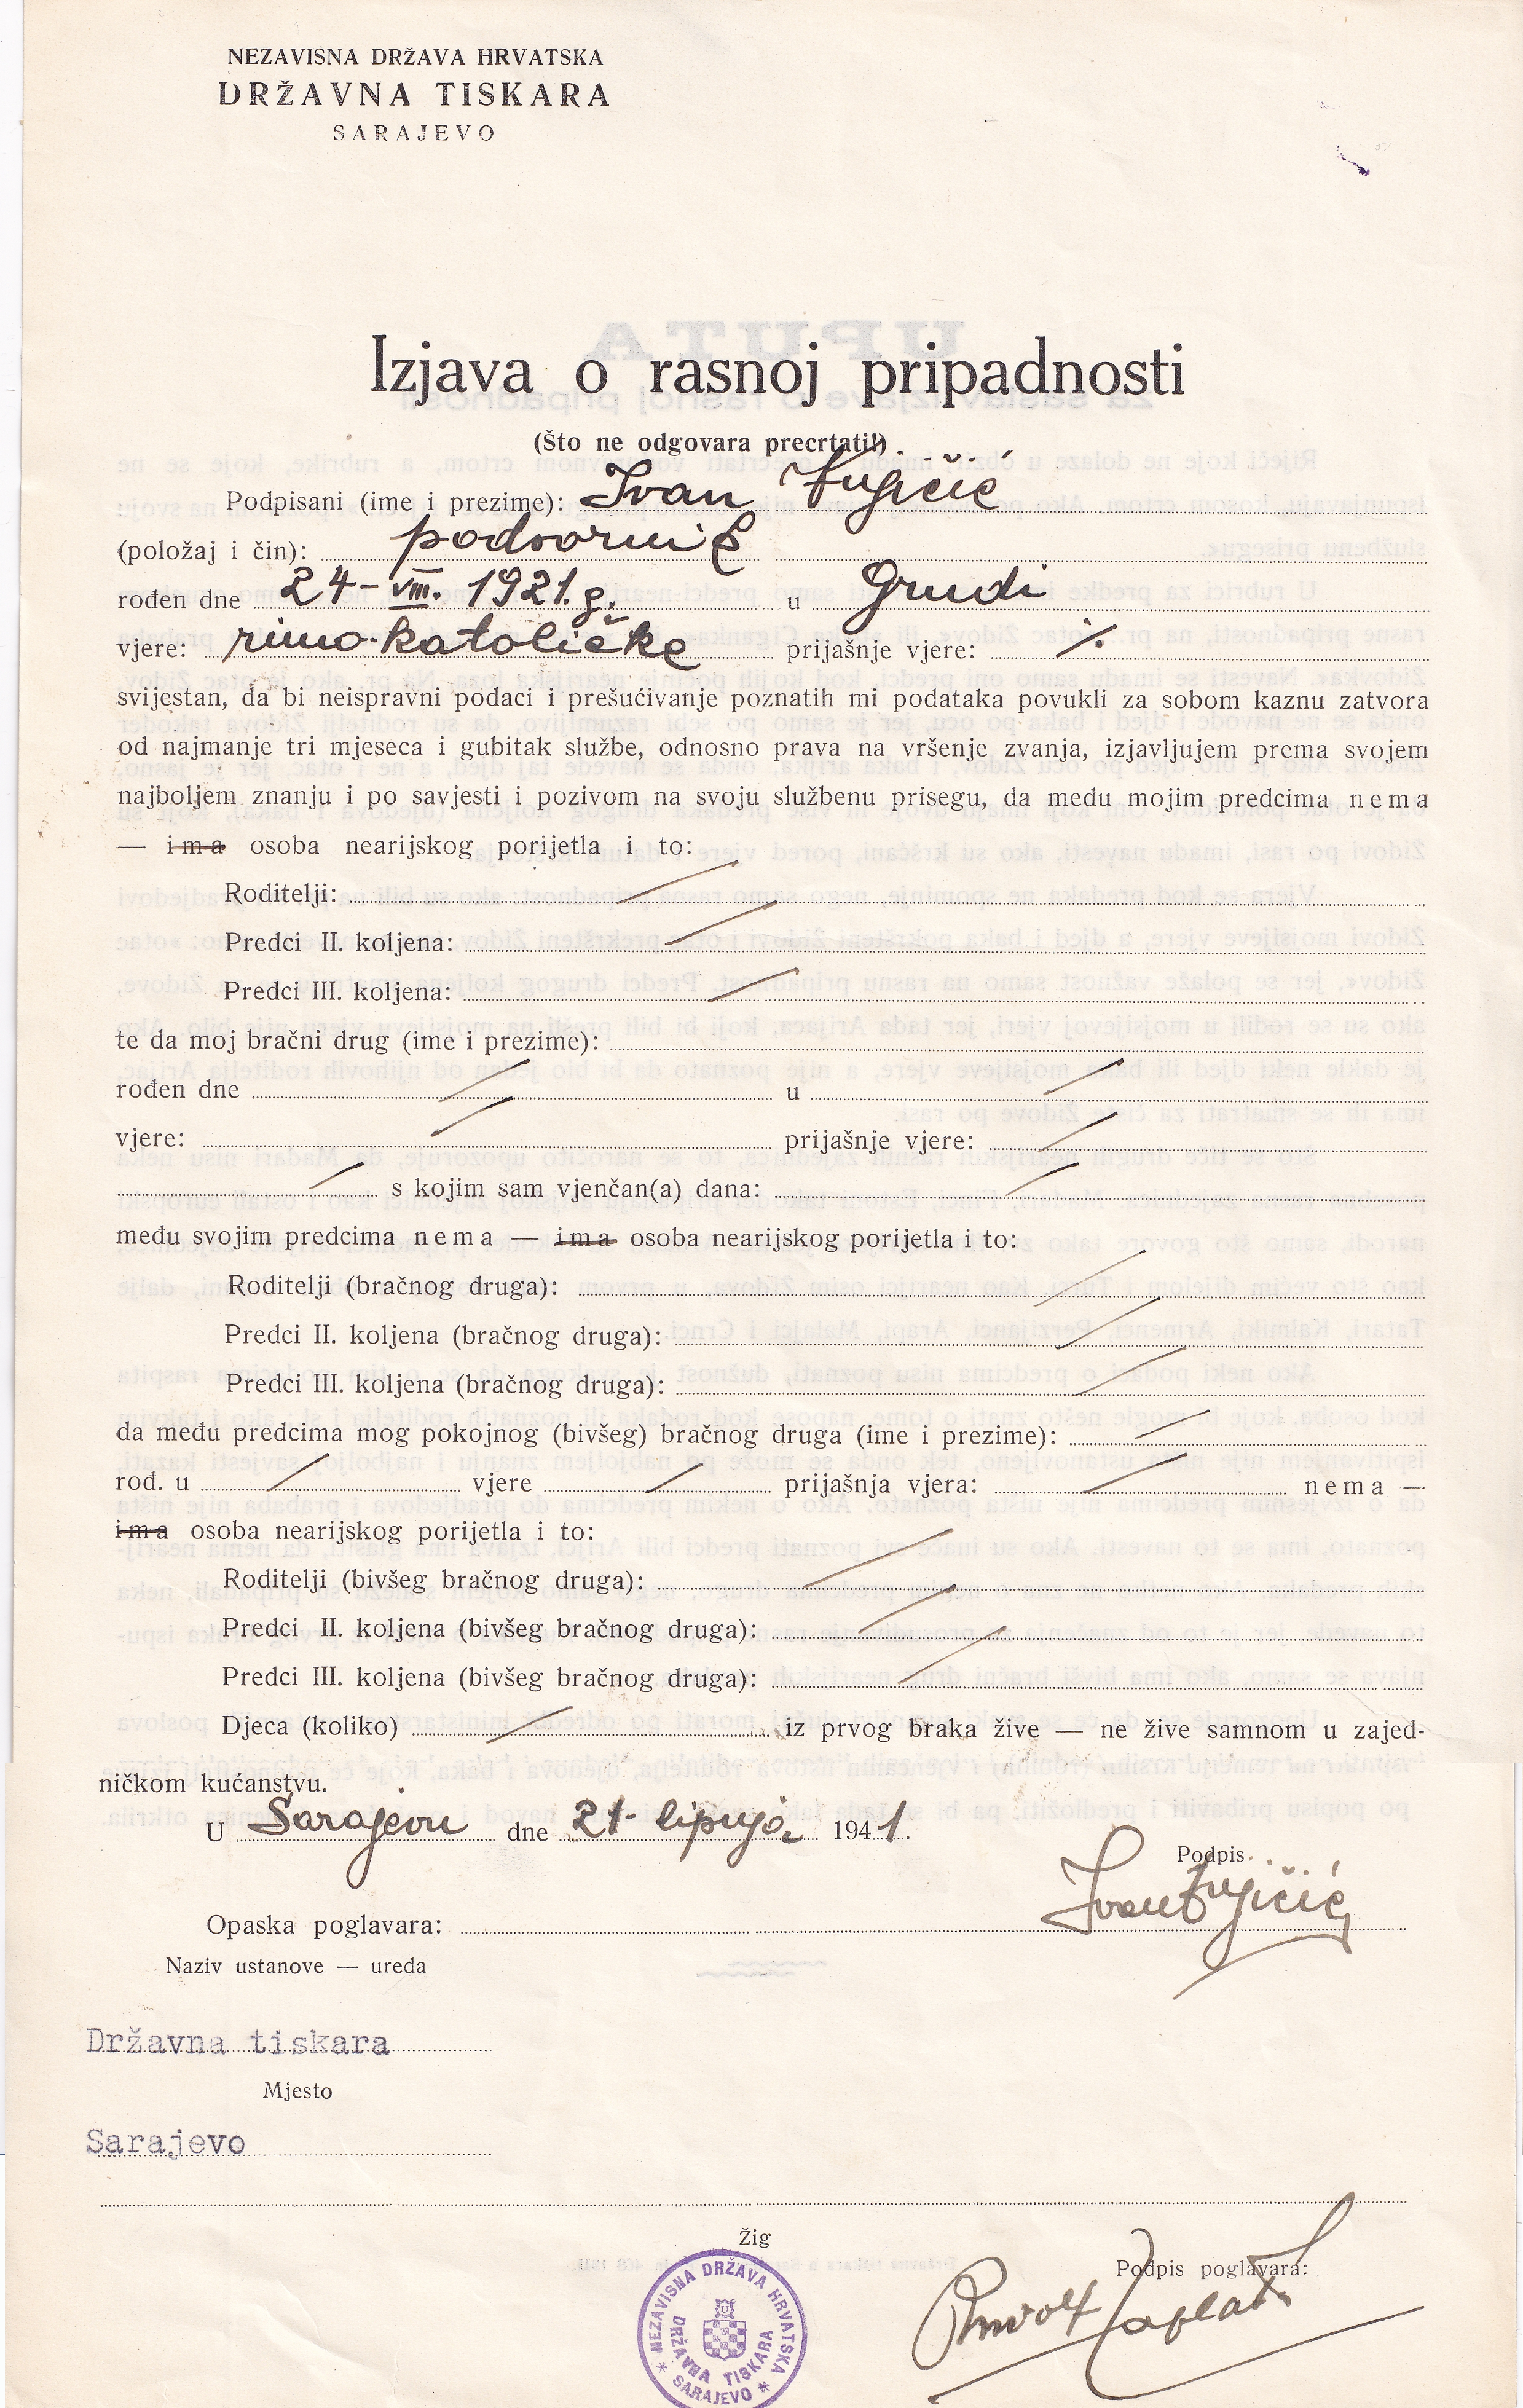 NEZAVISNA DRŽAVA HRVATSKA
DRŽAVNA TISKARA
SARAJEVO
Izjava o rasnoj pripadnosti
(Što ne odgovara precrtati!)
Podpisani (ime i prezime): Ivan
(položaj i čin): podvornik
rođen dne 24-VIII. 1921. g. u Grudi
vjere: rimo-katoličke prijašnje vjere: ./.
svijestan, da bi neispravni podaci i prešućivanje poznatih mi podataka povukli za sobom kaznu zatvora
od najmanje tri mjeseca i gubitak službe, odnosno prava na vršenje zvanja, izjavljujem prema svojem
najboljem znanju i po savjesti i pozivom na svoju službenu prisegu, da među mojim predcima nema
— ima osoba nearijskog porijetla i to:
Roditelji:
Predci II. koljena:
Predci III. koljena:
te da moj bračni drug (ime i prezime):
rođen dne u
vjere: prijašnje vjere:
s kojim sam vjenčan(a) dana:
među svojim predcima nema — ima osoba nearijskog porijetla i to:
Roditelji (bračnog druga):
Predci II. koljena (bračnog druga):
Predci III. koljena (bračnog druga):
da među predcima mog pokojnog (bivšeg) bračnog druga (ime i prezime):
rođ. u vjere prijašnja vjera: nema —
ima osoba nearijskog porijetla i to:
Roditelji (bivšeg bračnog druga):
Predci II. koljena (bivšeg bračnog druga):
Predci III. koljena (bivšeg bračnog druga):
Djeca (koliko) iz prvog braka žive — ne žive samnom u zajed-
ničkom kućanstvu.
U Sarajevu dne 21- lipnja 1941.
Podpis
Ivan
Opaska poglavara:
Naziv ustanove — ureda
Državna tiskara
Mjesto
Sarajevo
Žig
Podpis poglavara:
NEZAVISNA DRŽAVA HRVATSKA
DRŽAVNA TISKARA
* SARAJEVO *